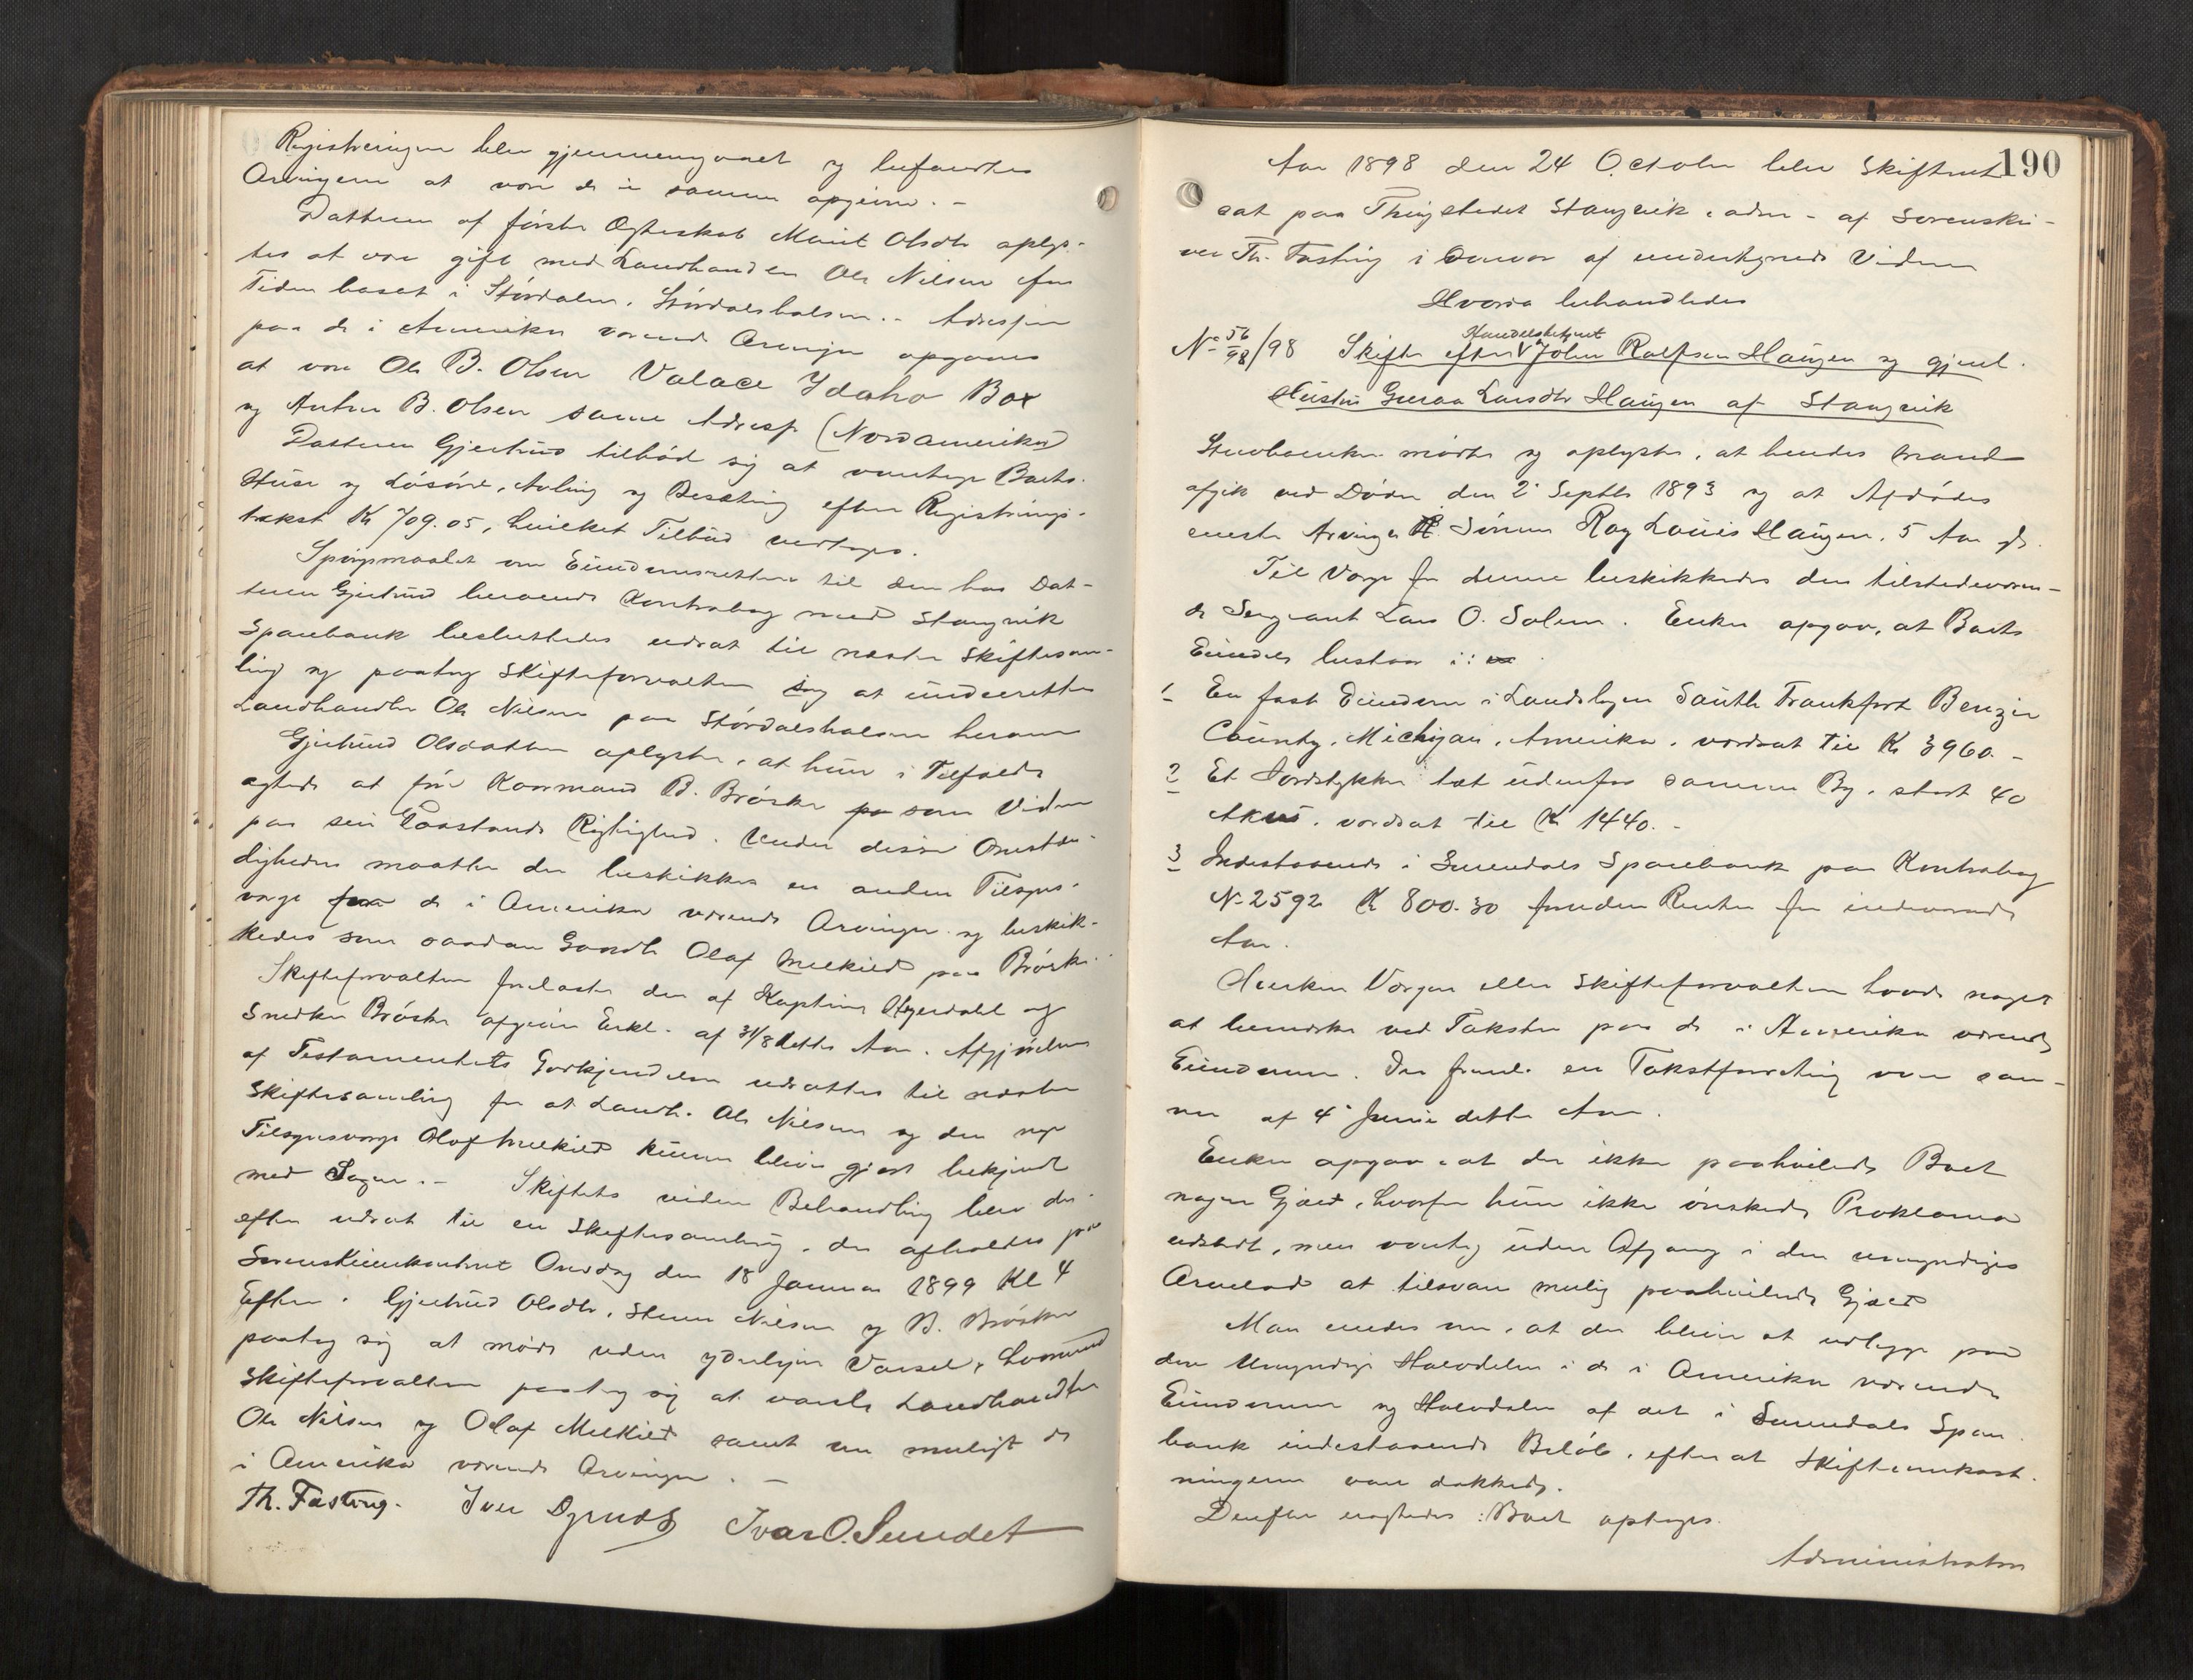 Registreringen blev gjennemgaaet og befandtes
Arvingerne at være de i samme opgivne. -
Datteren af første Ægteskab Marit Olsdtr oplys-
tes at være gift med Landhandler Ole Nilsen for
Tiden bosat i Størdalen, Størdalshalsen. - Adressen
paa de i Amerika værende Arvinger opgaves
at være Ole B. Olsen Valace Ydaho Box
og Anton B. Olsen samme Adresse (Nordamerika)
Datteren Gjertrud tilbød sig at overtage Boets
Huse og Løsøre, Avling og Besætning efter Registrerings-
takst Kr 709.05, hvilket Tilbud vedtoges.
Spørgsmaalet om Eiendomsretten til den hos Dat-
teren Gjertrud beroende Kontrabog med Stangvik
Sparebank besluttedes udsat til næste Skiftesam-
ling og paatog Skifteforvalteren sig at underrette
Landhandler Ole Nilsen paa Størdalshalsen herom
Gjertrud Olsdatter oplyste, at hun i Tilfælde
agtede at føre Kaarmand B. Brøske som Vidne
paa sin Paastands Rigtighed. Under disse Omstæn-
digheder maatte der beskikkes en anden Tilsyns-
værge for de i Amerika værende Arvinger og beskik-
kedes som saadan Gaardbr Olaf Melkild paa Brøske.
Skifteforvalteren forelæste den af Kaptein og
Snedker Brøske afgivne Erkl. af 31/8 dette Aar. Afgjørelsen
af Testamentets Godkjendelse udsattes til næste
Skiftesamling for at Landh. Ole Nilsen og den nye
Tilsynsværge Olaf Melkild kunne blive gjort bekjendt
med Sagen. - Skiftets videre Behandling blev der-
efter udsat til en Skiftesamling, der afholdes paa
Sorenskriverkontoret Onsdag den 18 Januar 1899 Kl 4
Efterm. Gjertrud Olsdtr, Nilsen og B. Brøske
paatog sig at møde uden yderligere Varsel, hvorimod
Skifteforvalteren paatog sig at varsle Landhandler
Ole Nilsen og Olaf Melkild samt om muligt de
i Amerika værende Arvinger. -
Th. Fasting. Iver Ivar O. Sundet
190
Aar 1898 den 24 October blev Skifteret
sat paa Thingstedet Stangvik, adm - af Sorenskri-
ver Th. Fasting i Overvær af undertegnede Vidner
Hvorda behandledes
No 56/98/98 Skifte efter Handelsbetjent John Rolfsen Haugen og gjenl.
Hustru Guraa Larsdtr Haugen af Stangvik
Stervboenken mødte og oplyste, at hendes Mand
afgik ved Døden den 2. Septbr 1893 og at Afdødes
eneste Arving Sønnen Roy Louis Haugen, 5 Aar gl.
Til Værge for denne beskikkedes den tilstedeværen-
de Sergeant Lars O. Solem. Enken opgav, at Boets
Eiendele bestaar i:
1 En fast Eiendom i Landsbyen South Frankfort Benzie
County, Michigan, Amerika, værdsat til Kr 3960. -
2 Et Jordstykke tæt udenfor samme By, stort 40
Akres, værdsat til Kr 1440. -
3 Indestaaende i Surendals Sparebank paa Kontrabog
No 2592 Kr 800.30 foruden Renter for indeværende
Aar.
Hverken Værgen eller Skifteforvalteren havde noget
at bemærke ved Taksten paa de i Amerika værende
Eiendomme. Der forel. en Takstforretning over sam-
me af 4. Juni dette Aar.
Enken opgav, at der ikke paahvilede Boet
nogen Gjæld, hvorfor hun ikke ønskede Proklama
udstedt, men vovtog uden Afgang i den umyndiges
Arvelod at tilsvare mulig paahvilende Gjæld
Man enedes om, at der bliver at udlægge paa
den Umyndige Halvdelen i de i Amerika værende
Eiendomme og Halvdelen af det i Surendals Spare-
bank indestaaende Beløb, efter at Skifteomkost-
ningerne vare dækkede.
Derefter eragtedes: Boet optages.
Administrator